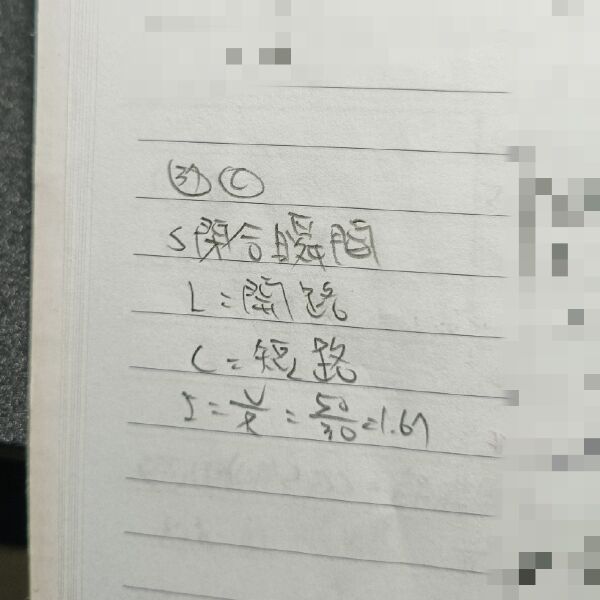 37 C
S閉合瞬間
L=開路
C=短路
I=V/R=50/30=1.67